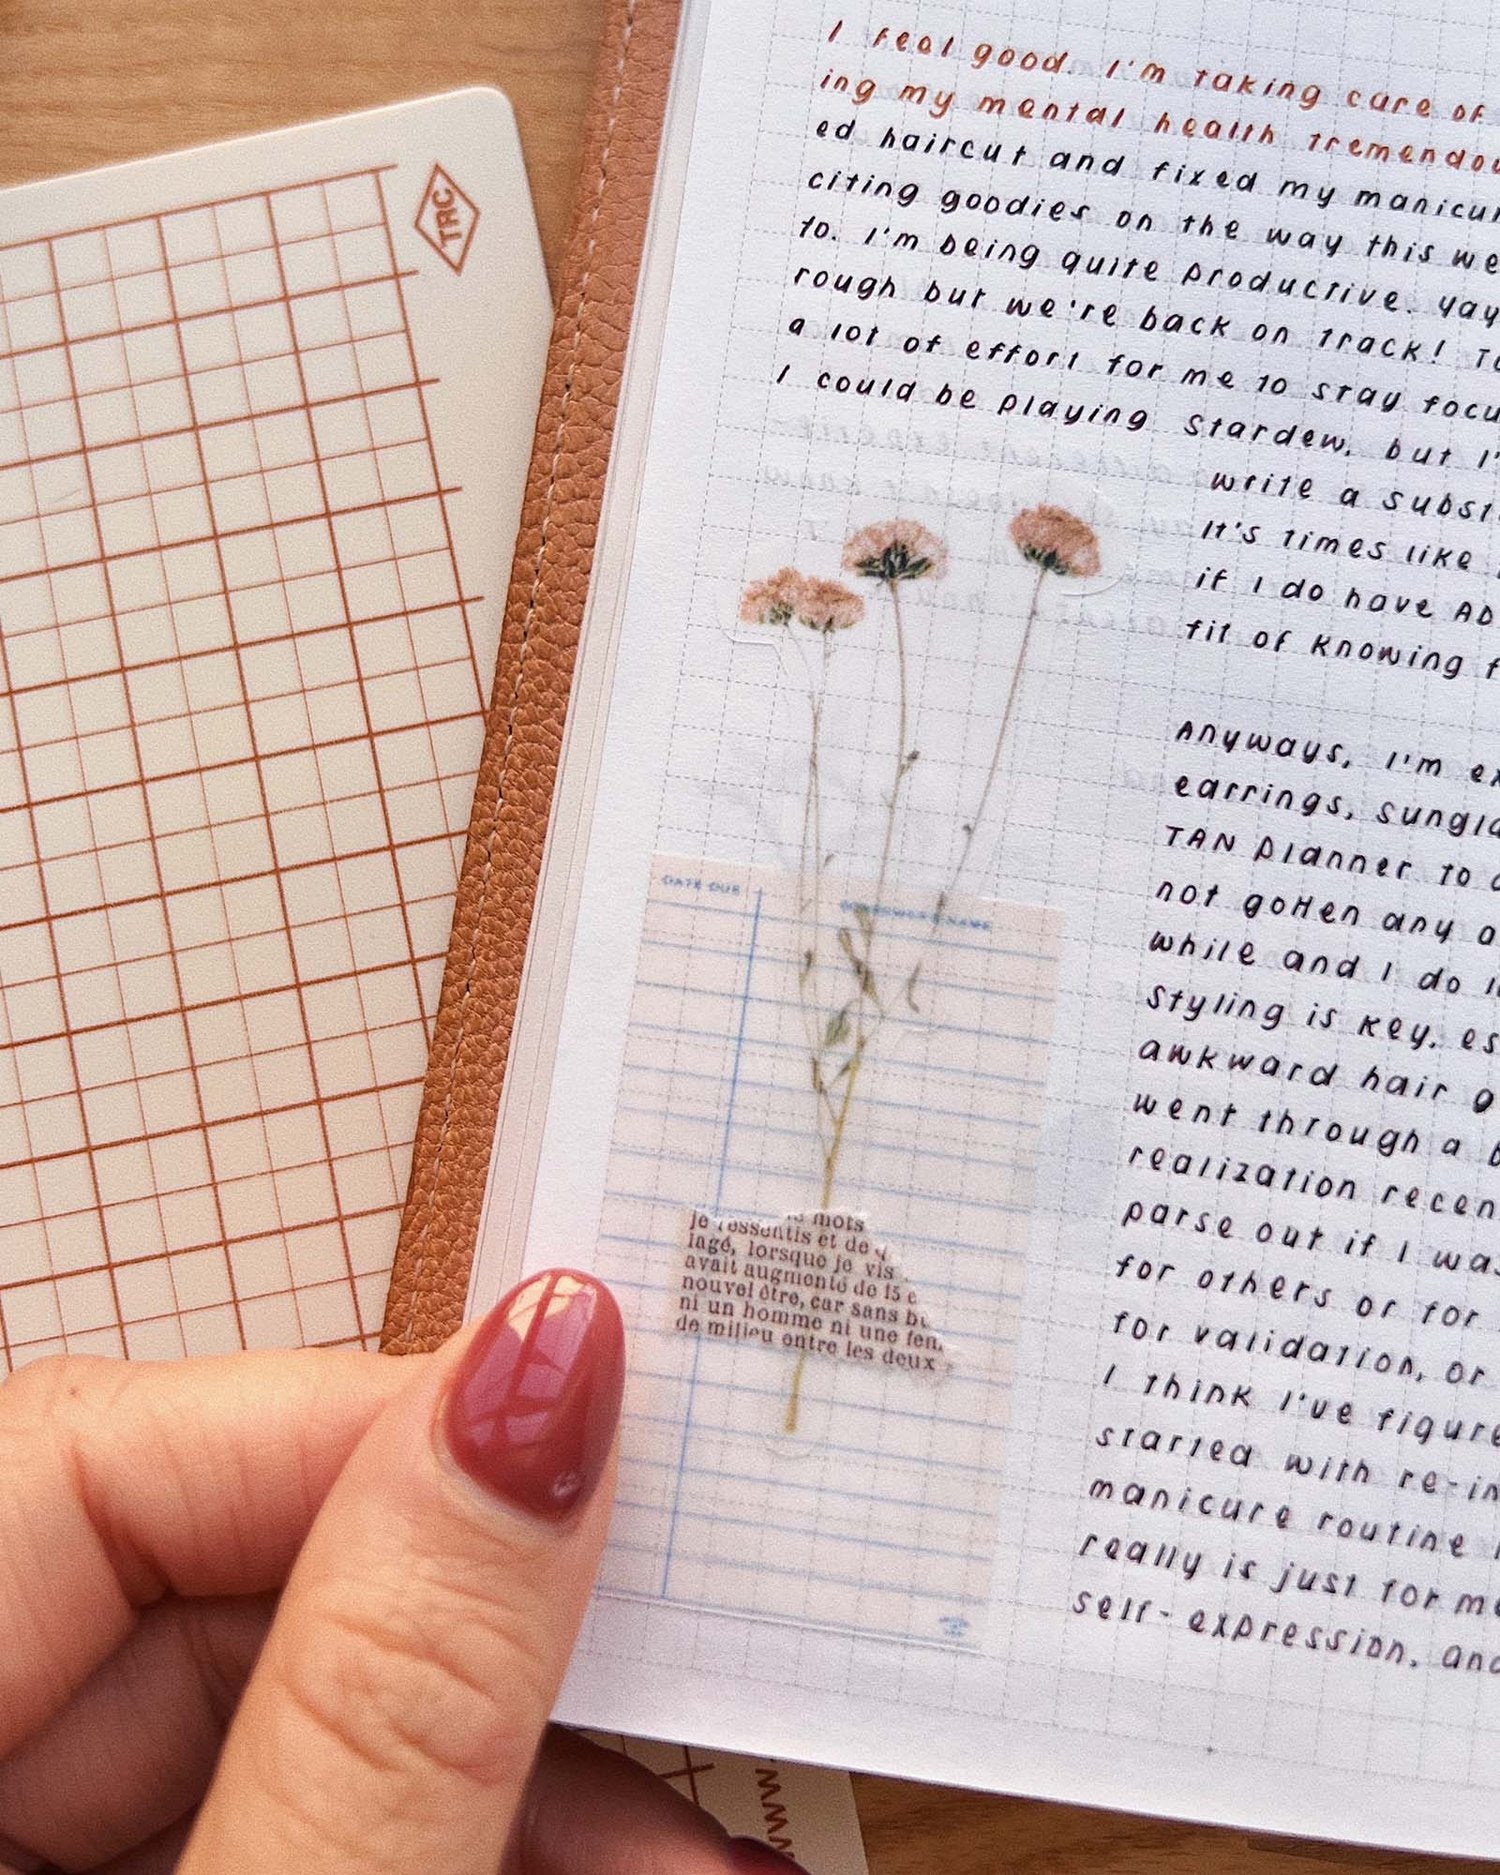 TRC
I feel good. I'm taking care of
ing my mental health tremendou
ed haircut and fixed my manicur
citing goodies on the way this we
to. I'm being quite productive. yay
rough but we're back on track! To
a lot of effort for me to stay focu
I could be playing Stardew, but I'
write a subst
It's times like
if I do have AD
fit of knowing f
Anyways, I'm ex
earrings, sungla
TAN planner to
not gotten any a
while and I do
Styling is key, es
awkward hair g
went through a
realization recen
parse out if I was
for others or for
for validation, or
I think I've figure
started with re-in
manicure routine
really is just for me
self-expression, and
DATE DUE
BORROWER'S NAME
mots
je ressentis et de
lagé, lorsque je vis
avait augmenté de 15 c
nouvel être, car sans bu
ni un homme ni une fem
de milieu entre les deux